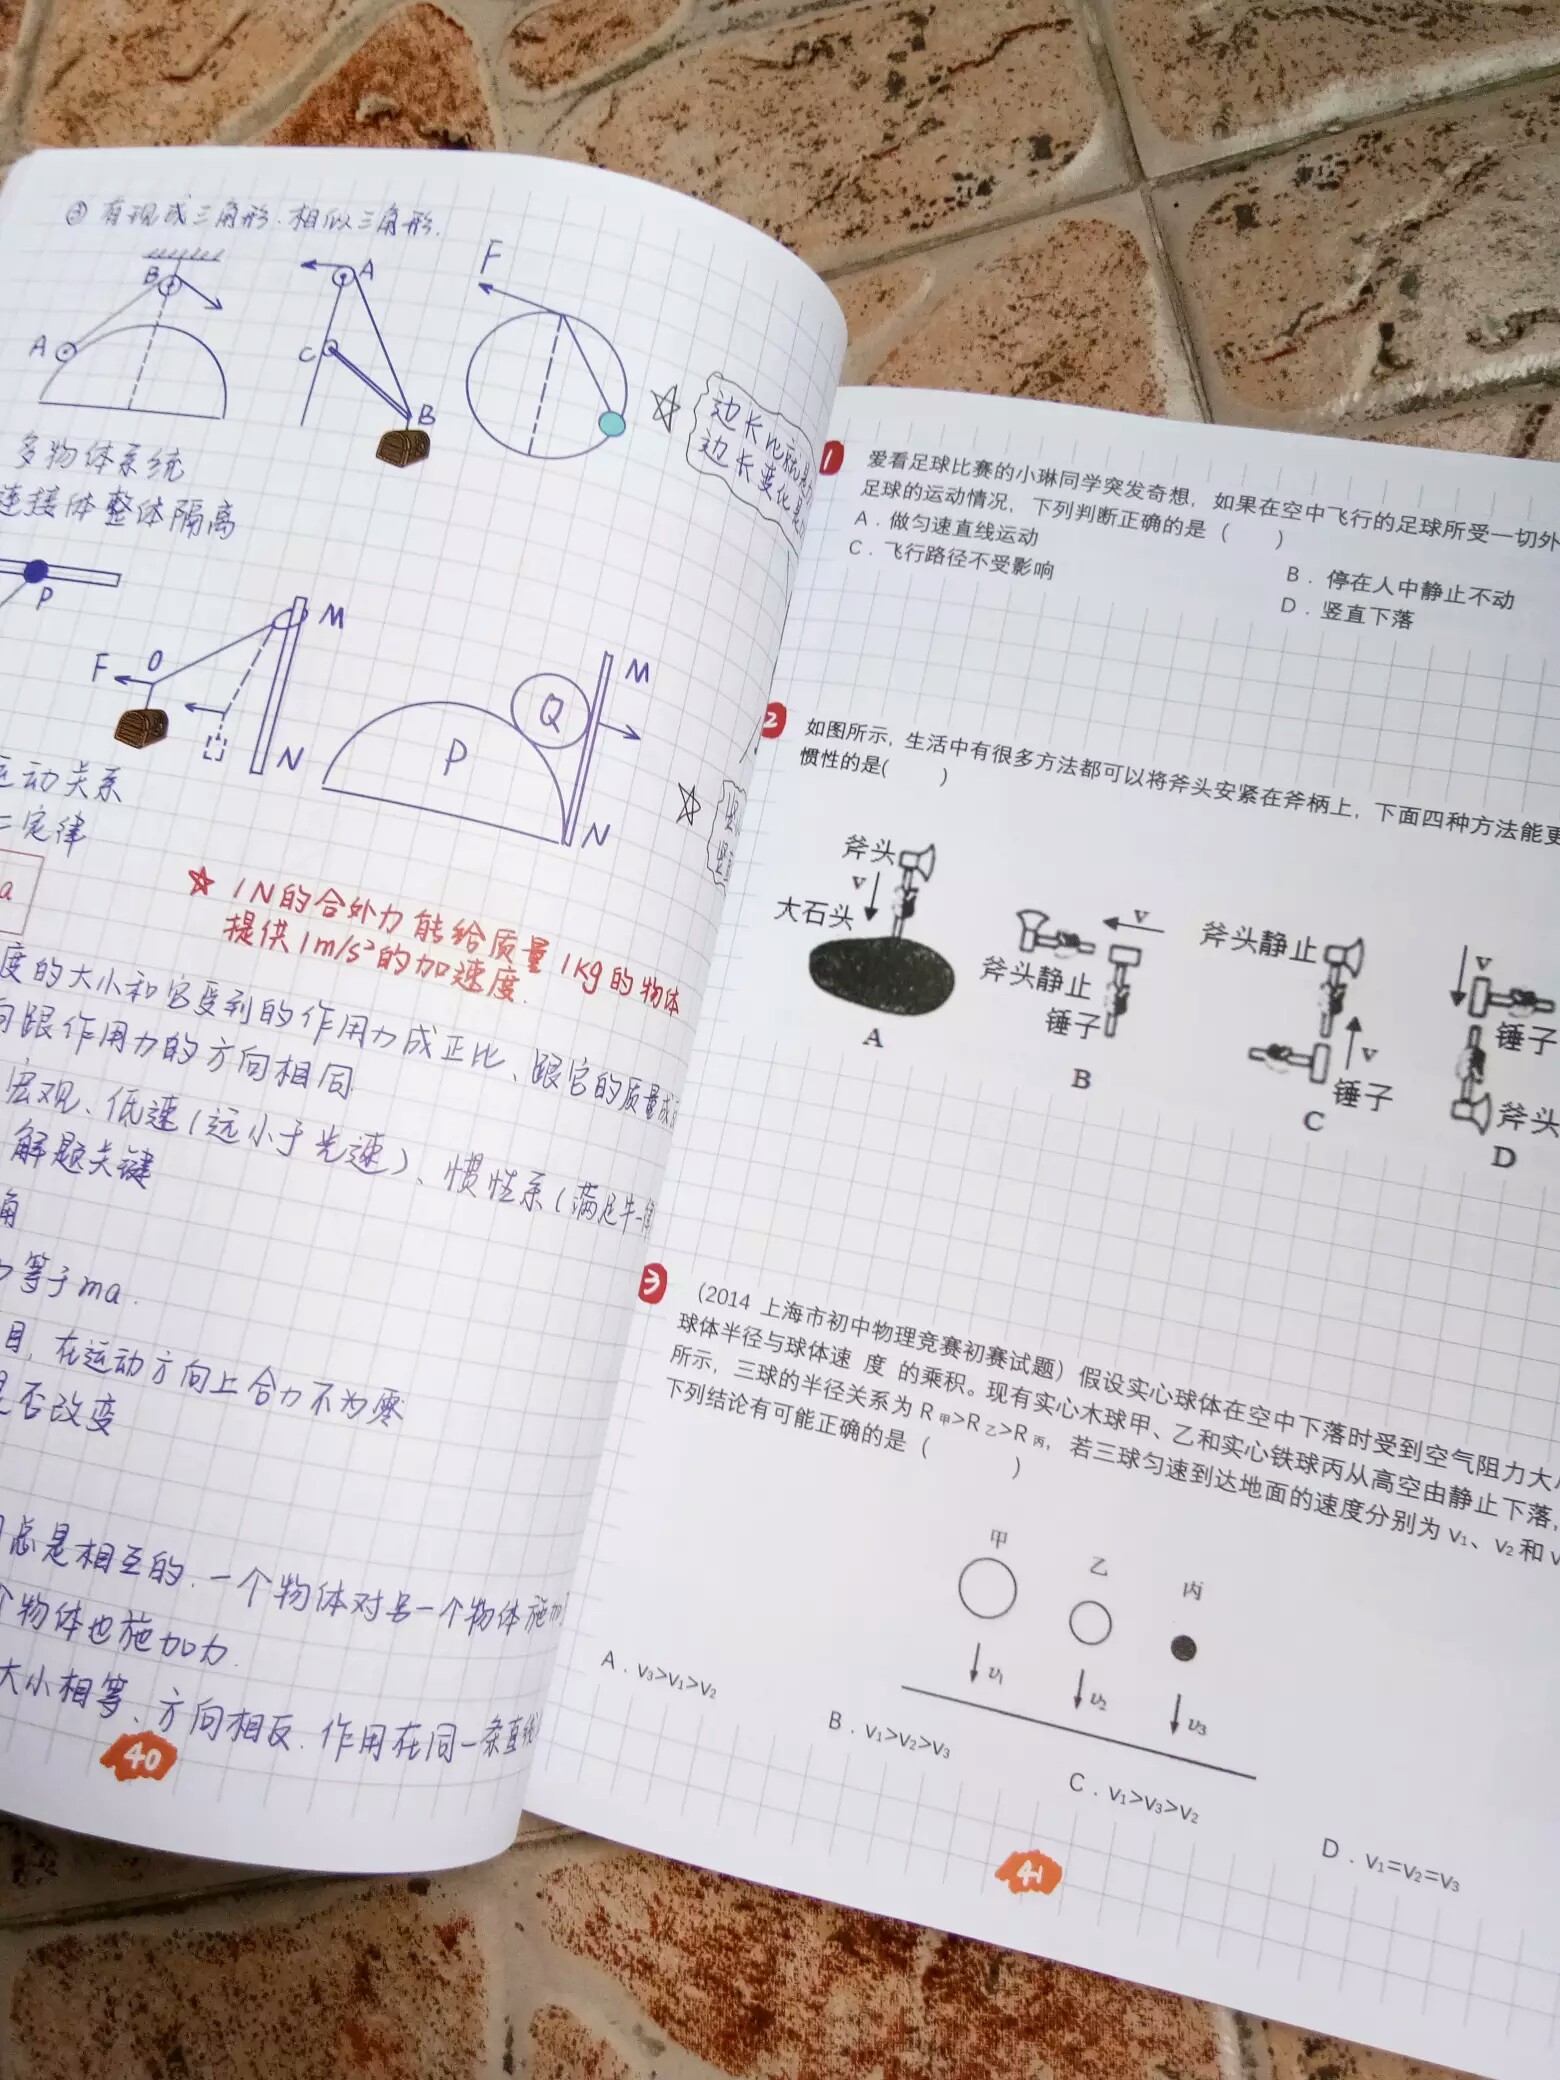 ③ 有现成三角形.相似三角形.
B
A
A
C
B
F
边长比就是
边长变化
多物体系统
连接体整体隔离
P
F
O
M
N
P
Q
M
N
运动关系
二定律
a
☆ 1N的合外力能给质量1kg的物体
提供1m/s²的加速度.
度的大小和它受到的作用力成正比、跟它的质量成
向跟作用力的方向相同
宏观、低速(远小于光速)、惯性系(满足牛一律
解题关键
角
等于ma.
目,在运动方向上合力不为零
是否改变
总是相互的.一个物体对另一个物体施加
个物体也施加力.
大小相等、方向相反.作用在同一条直线
40
1
爱看足球比赛的小琳同学突发奇想,如果在空中飞行的足球所受一切外
足球的运动情况,下列判断正确的是( )
A.做匀速直线运动
B.停在人中静止不动
C.飞行路径不受影响
D.竖直下落
2
如图所示,生活中有很多方法都可以将斧头安紧在斧柄上,下面四种方法能更
惯性的是( )
斧头
v
大石头
A
v
斧头静止
锤子
B
斧头静止
v
锤子
C
v
锤子
斧头
D
3
(2014 上海市初中物理竞赛初赛试题)假设实心球体在空中下落时受到空气阻力大
球体半径与球体速 度 的乘积。现有实心木球甲、乙和实心铁球丙从高空由静止下落,
所示,三球的半径关系为 R甲>R乙>R丙,若三球匀速到达地面的速度分别为 v₁、v₂ 和 v
下列结论有可能正确的是( )
甲
乙
丙
v₁
v₂
v₃
A.v₃>v₁>v₂
B.v₁>v₂>v₃
C.v₁>v₃>v₂
D.v₁=v₂=v₃
41